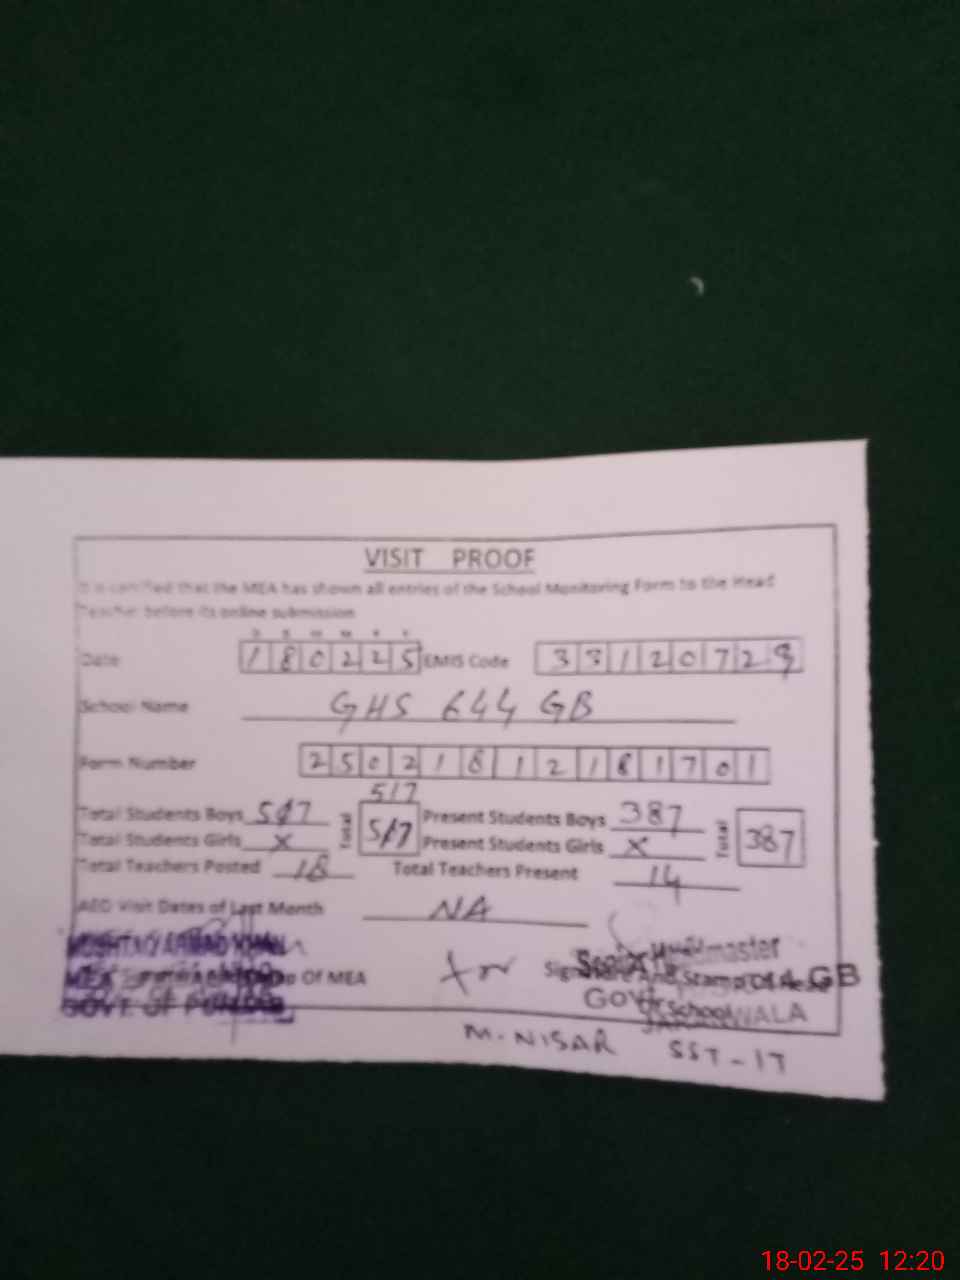 VISIT PROOF
It is certified that the MEA has shown all entries of the School Monitoring Form to the Head
Teacher before its online submission
D D M M Y Y
Date 180225 EMIS Code 3312072
School Name GHS 644 GB
Form Number 25021812181701
517
Total Students Boys 517 Total 517 Present Students Boys 387 Total 387
Total Students Girls X Present Students Girls X
Total Teachers Posted 18 Total Teachers Present 14
AEO Visit Dates of Last Month NA
MUSHTAQ AHMAD KHAN
MEA Of MEA
GOVT. OF PUNJAB
for
Senior Headmaster
Signature And Stamp Of Head GB
Govt School
JARANWALA
M. NISAR SST-IT
18-02-25 12:20